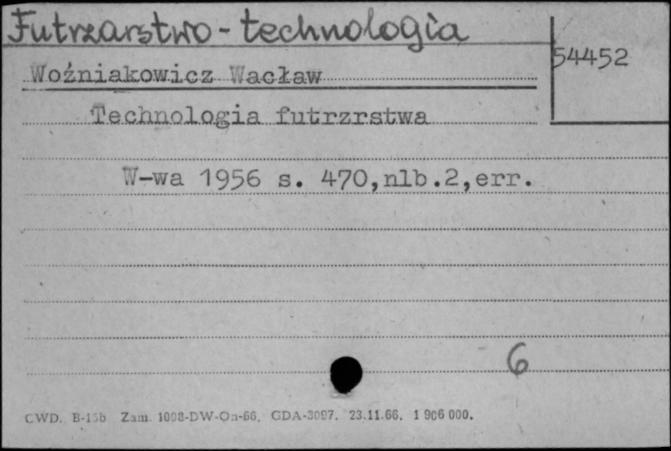 Futrzarstwo - technologia
54452
Woźniakowicz Wacław
Technologia futrzrstwa
W-wa 1956 s. 470,nlb.2,err.
6
CWD. B-15b Zam. 1098-DW-On-66. GDA-3097. 23.11.66. 1 906 000.